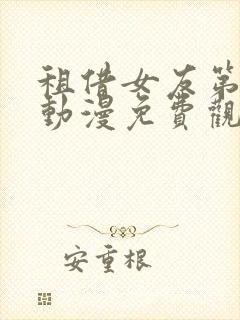 租借女友第
動漫免費觀
安重根